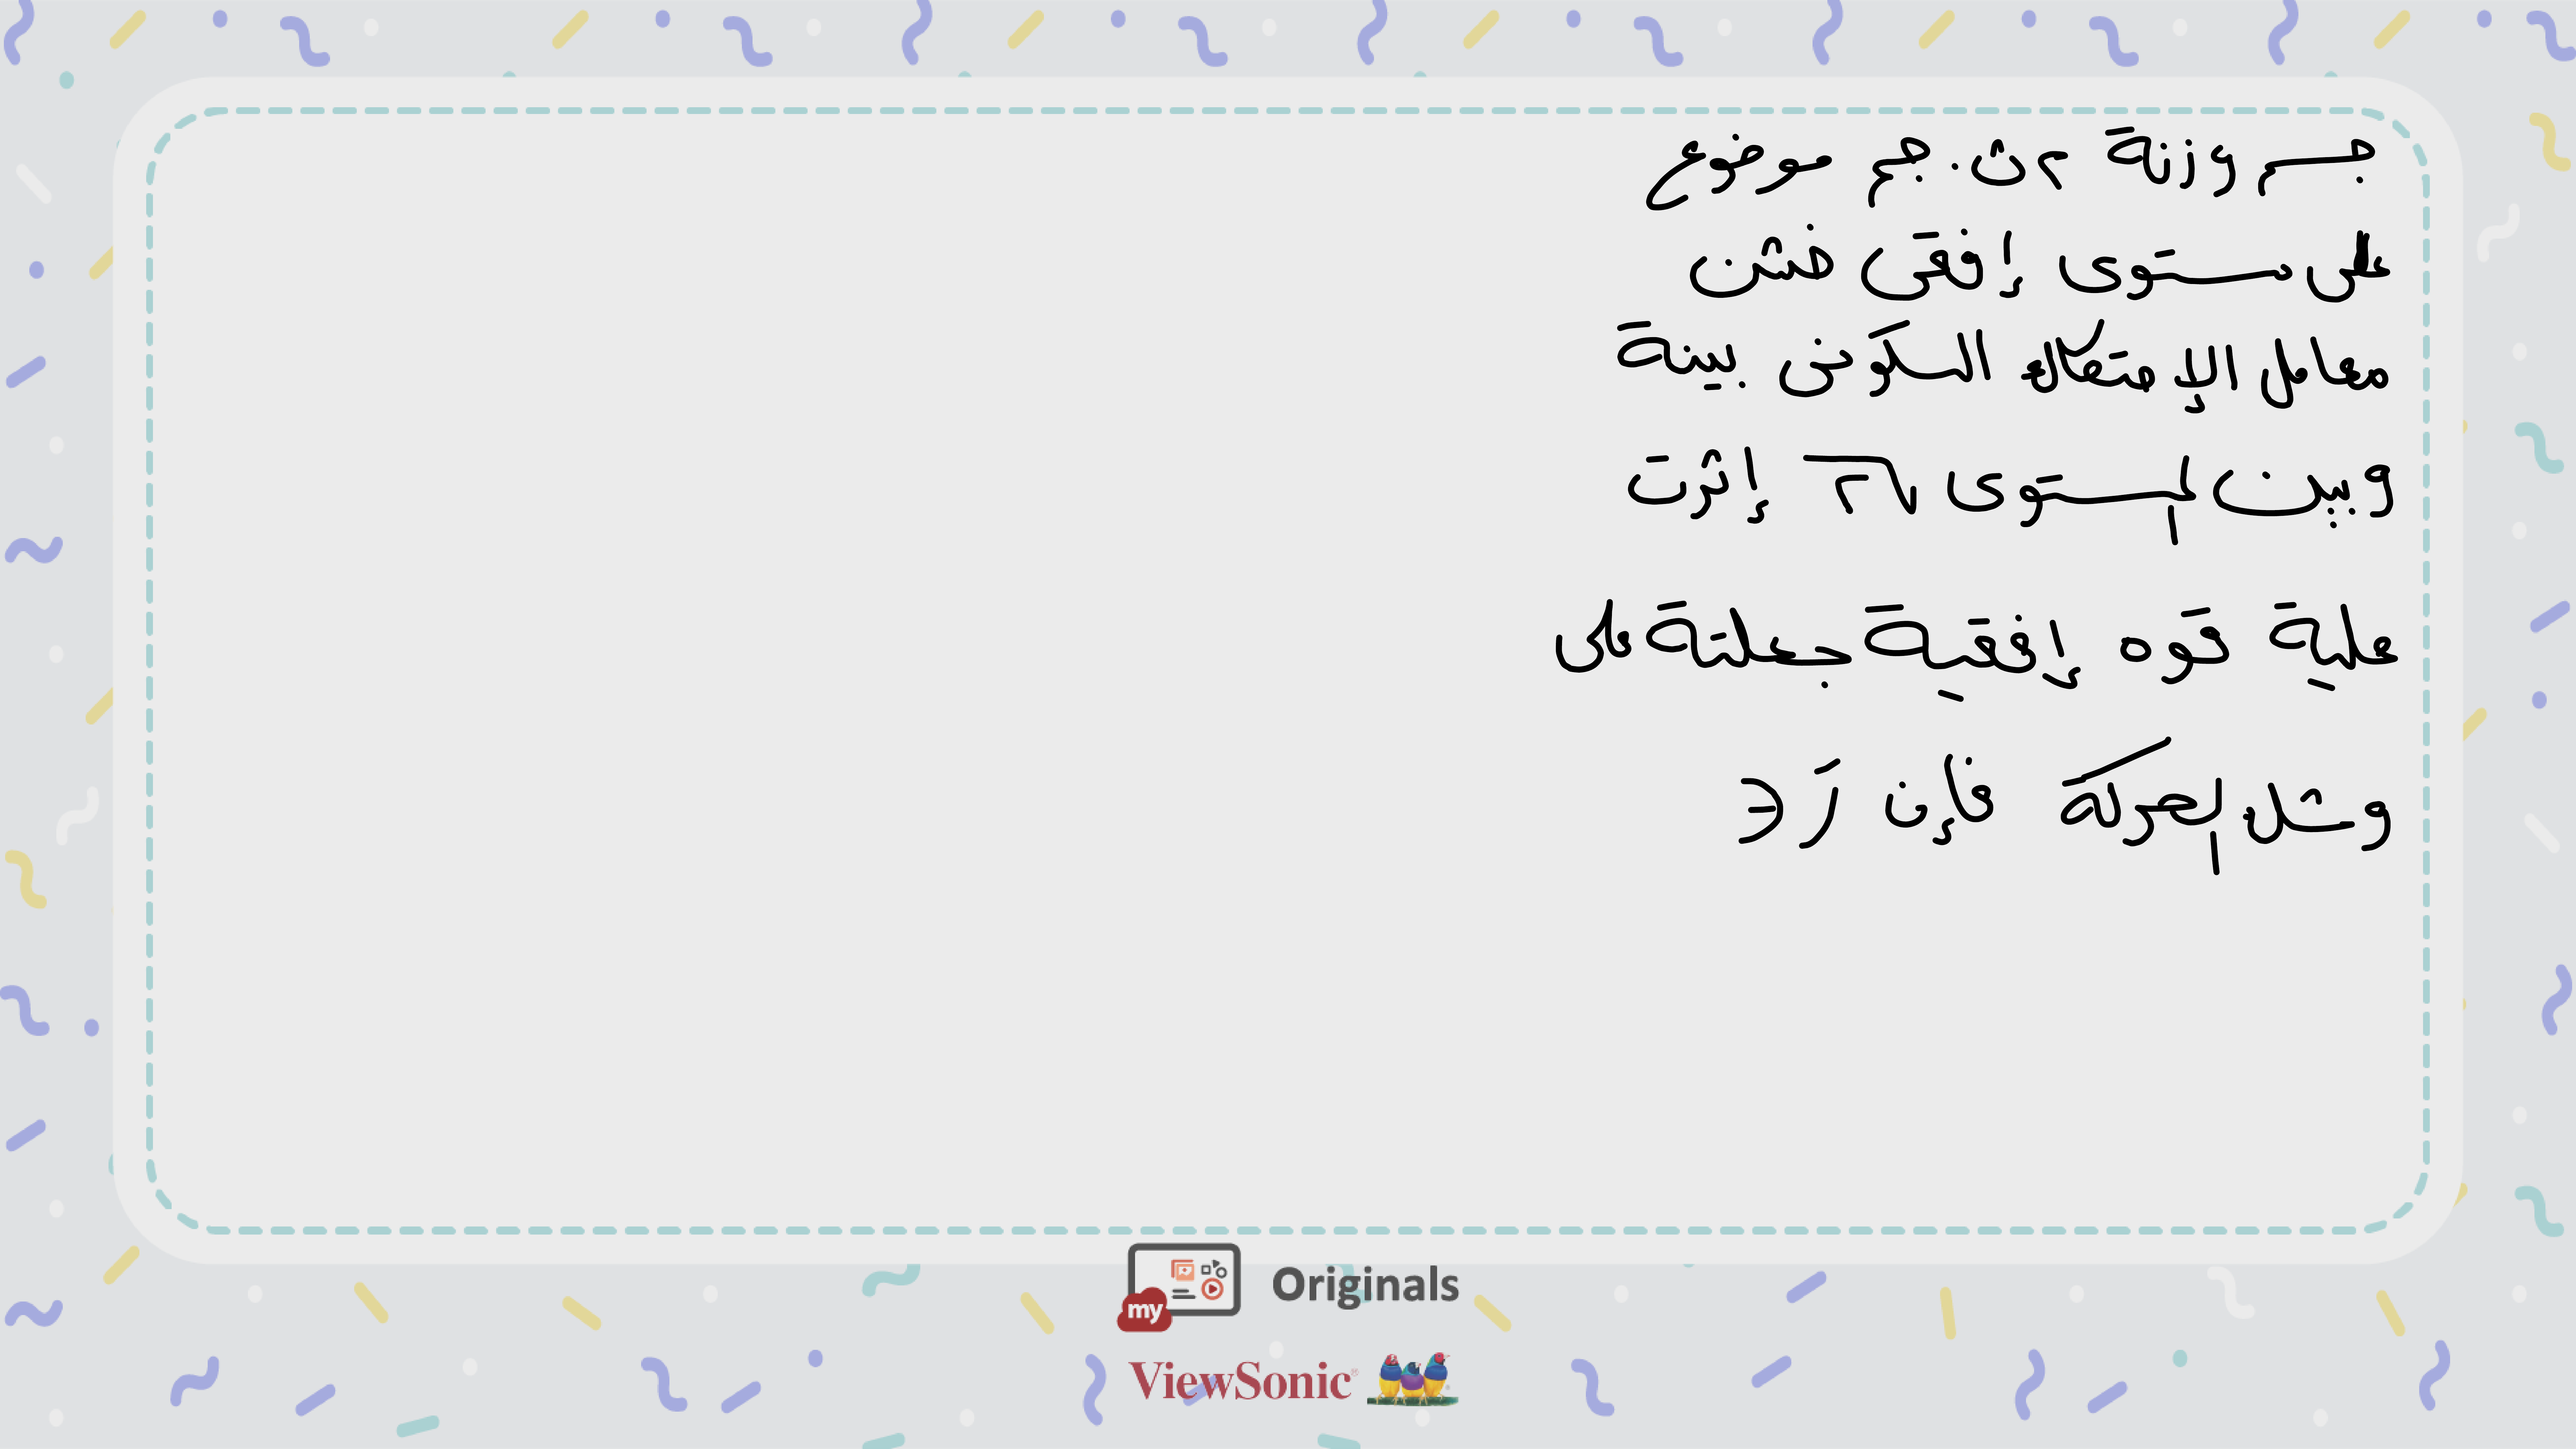 جسم وزنة ٢ ث.جم موضوع
على مستوى إفقى خشن
معامل الإحتكاك السكونى بينة
وبين المستوى √٢ إثرت
علية قوه إفقية جعلتة على
وشك الحركة فإن رَ ∈
my Originals
ViewSonic